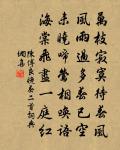 萬枝寂寞待春風
風雨過多春已空
未曉啼鶯相喚語
海棠飛盡一庭紅
陳傅良晚春二首詞典
網